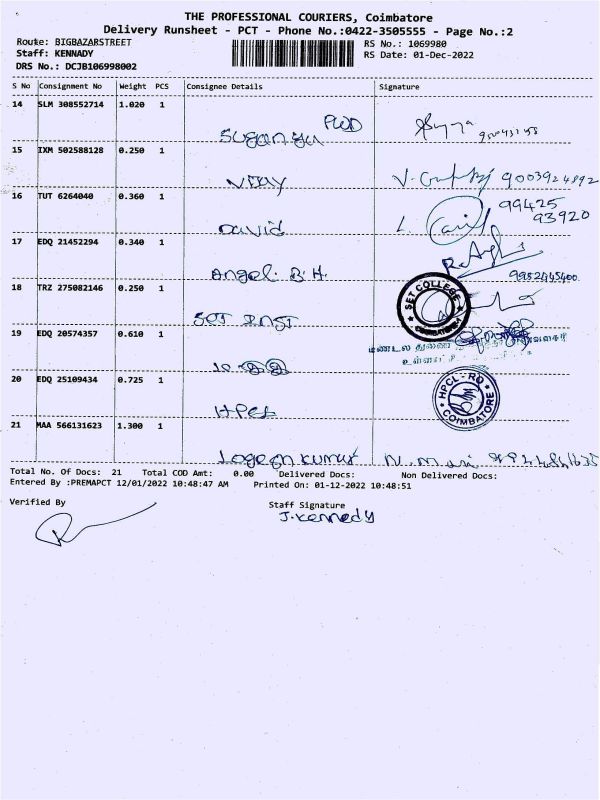 THE PROFESSIONAL COURIERS, Coimbatore
Delivery Runsheet - PCT - Phone No.:0422-3505555 - Page No.:2
Route: BIGBAZARSTREET RS No.: 1069980
Staff: KENNADY RS Date: 01-Dec-2022
DRS No.: DCJB106998002
S No Consignment No Weight PCS Consignee Details Signature
14 SLM 308552714 1.020 1
Suganya PWD
15 IXM 502588128 0.250 1
Vijay 9003924892
16 TUT 6264040 0.360 1
David L. 99425 93920
17 EDQ 21452294 0.340 1
Angel. B. H. 9952445400
18 TRZ 275082146 0.250 1
SET INST SET COLLEGE COIMBATORE
19 EDQ 20574357 0.610 1
மண்டல துணை
20 EDQ 25109434 0.725 1
HPCL HPCL-RO COIMBATORE
21 MAA 566131623 1.300 1
Logesh kumar N. Mani
Total No. Of Docs: 21 Total COD Amt: 0.00 Delivered Docs: Non Delivered Docs:
Entered By :PREMAPCT 12/01/2022 10:48:47 AM Printed On: 01-12-2022 10:48:51
Verified By Staff Signature
J. Kennedy